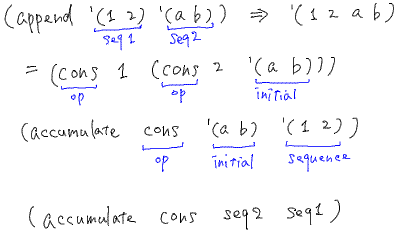 (append '(1 2) '(a b)) ⇒ '(1 2 a b)
seq1 seq2
= (cons 1 (cons 2 '(a b)))
op op initial
(accumulate cons '(a b) '(1 2))
op initial sequence
(accumulate cons seq2 seq1)